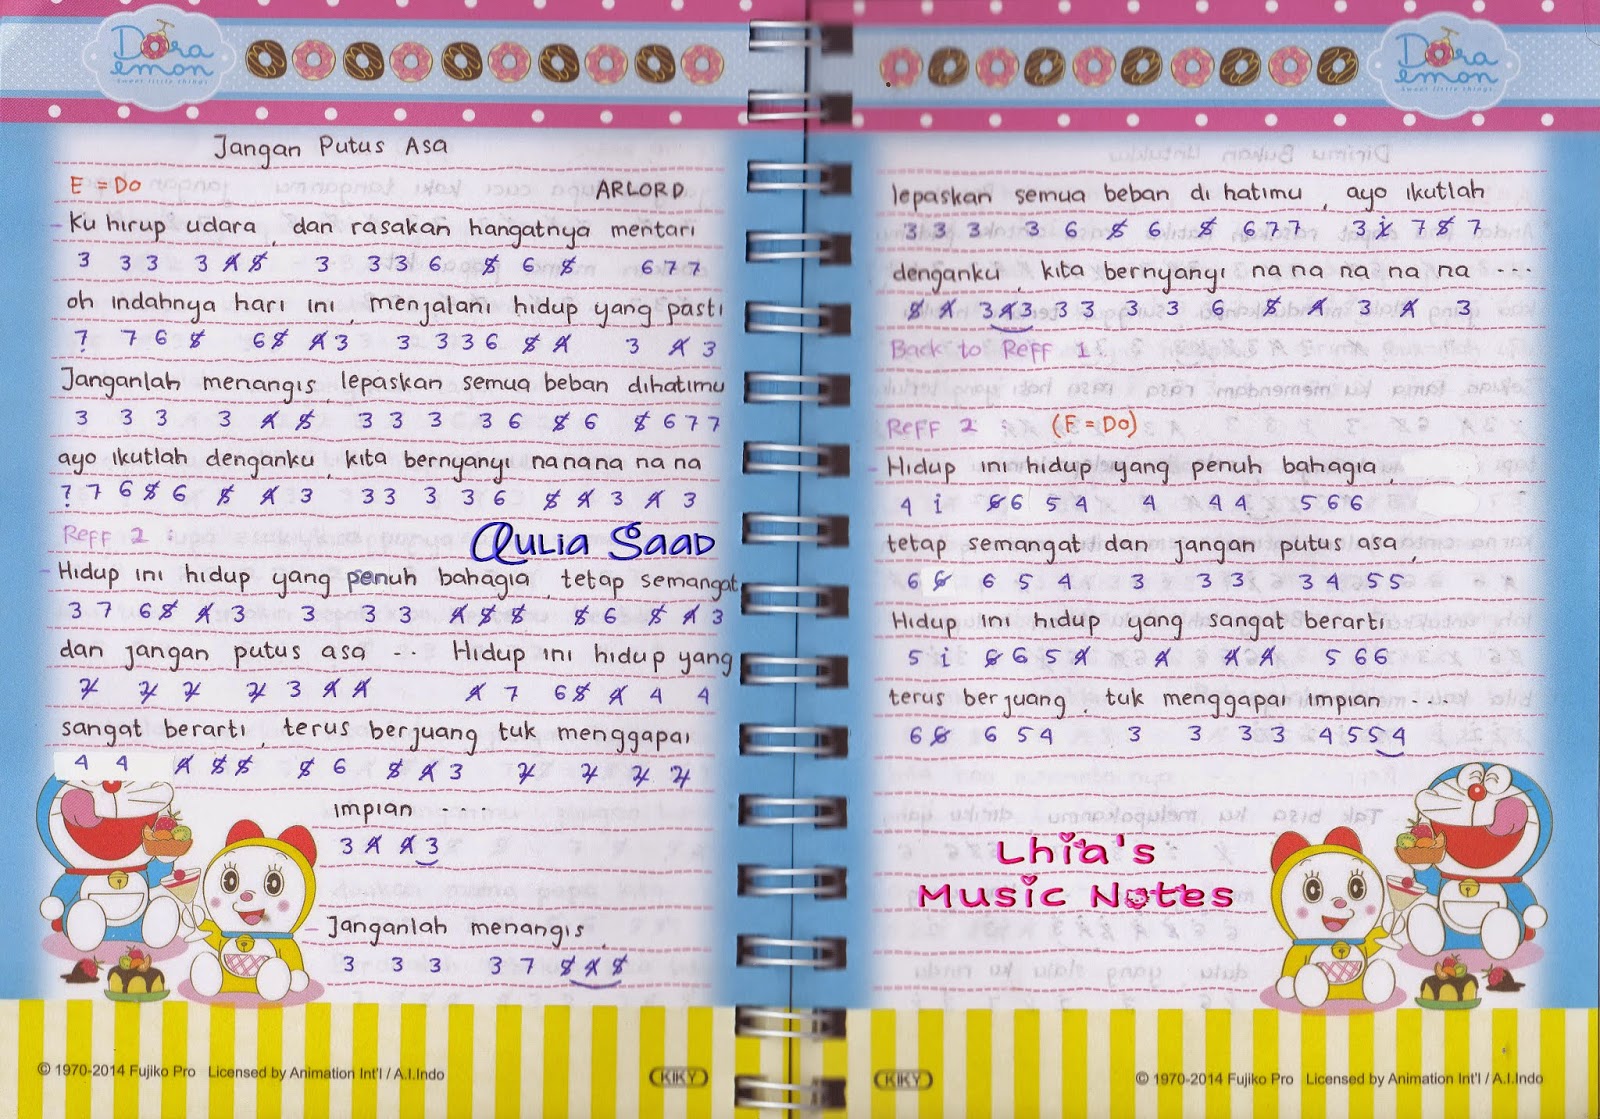 Dora
emon
sweet little things
Jangan Putus Asa
E = Do ARLORD
- Ku hirup udara, dan rasakan hangatnya mentari
3 3 3 3 4̸ 5̸ 3 3 3 6 5̸ 6 5̸ 6 7 7
oh indahnya hari ini, menjalani hidup yang pasti
? 7 6 5̸ 6 5̸ 4̸ 3 3 3 3 6 5̸ 4̸ 3 4̸ 3
Janganlah menangis, lepaskan semua beban dihatimu
3 3 3 3 4̸ 5̸ 3 3 3 3 6 5̸ 6 5̸ 6 7 7
ayo ikutlah denganku, kita bernyanyi na na na na na
? 7 6 5̸ 6 5̸ 4̸ 3 3 3 3 3 6 5̸ 4̸ 3 4̸ 3
Reff 2 :
Aulia Saad
- Hidup ini hidup yang penuh bahagia, tetap semangat
3 7 6 5̸ 4̸ 3 3 3 3 4̸ 5̸ 5̸ 5̸ 6 5̸ 4̸ 3
dan jangan putus asa ... Hidup ini hidup yang
2̸ 2̸ 2̸ 2̸ 3 4̸ 4̸ 4̸ 7 6 5̸ 4̸ 4 4
sangat berarti, terus berjuang tuk menggapai
4 4 4̸ 5̸ 5̸ 5̸ 6 5̸ 4̸ 3 2̸ 2̸ 2̸ 2̸
impian ....
3 4̸ 4̸ 3
- Janganlah menangis,
3 3 3 3 7 5̸ 4̸ 5̸
© 1970-2014 Fujiko Pro Licensed by Animation Int'l / A.I.Indo
KIKY
Dora
emon
sweet little things
lepaskan semua beban di hatimu, ayo ikutlah
3 3 3 3 6 5̸ 6 5̸ 6 7 7 3 i̸ 7 5̸ 7
denganku, kita bernyanyi na na na na na ...
5̸ 4̸ 3 4̸ 3 3 3 3 3 6 5̸ 4̸ 3 4̸ 3
Back to Reff 1
Reff 2 : (F = Do)
- Hidup ini hidup yang penuh bahagia,
4 i 6̸ 6 5 4 4 4 4 5 6 6
tetap semangat dan jangan putus asa,
6 6̸ 6 5 4 3 3 3 3 4 5 5
Hidup ini hidup yang sangat berarti
5 i 6̸ 6 5 4̸ 4̸ 4̸ 4̸ 5 6 6
terus berjuang, tuk menggapai impian ....
6 6̸ 6 5 4 3 3 3 3 4 5 5 4
Lhia's
Music Notes
KIKY
© 1970-2014 Fujiko Pro Licensed by Animation Int'l / A.I.Indo